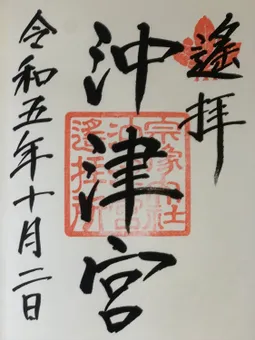 遙拝
沖津宮
令和五年十月二日
宗像大社
沖津宮
遙拝所